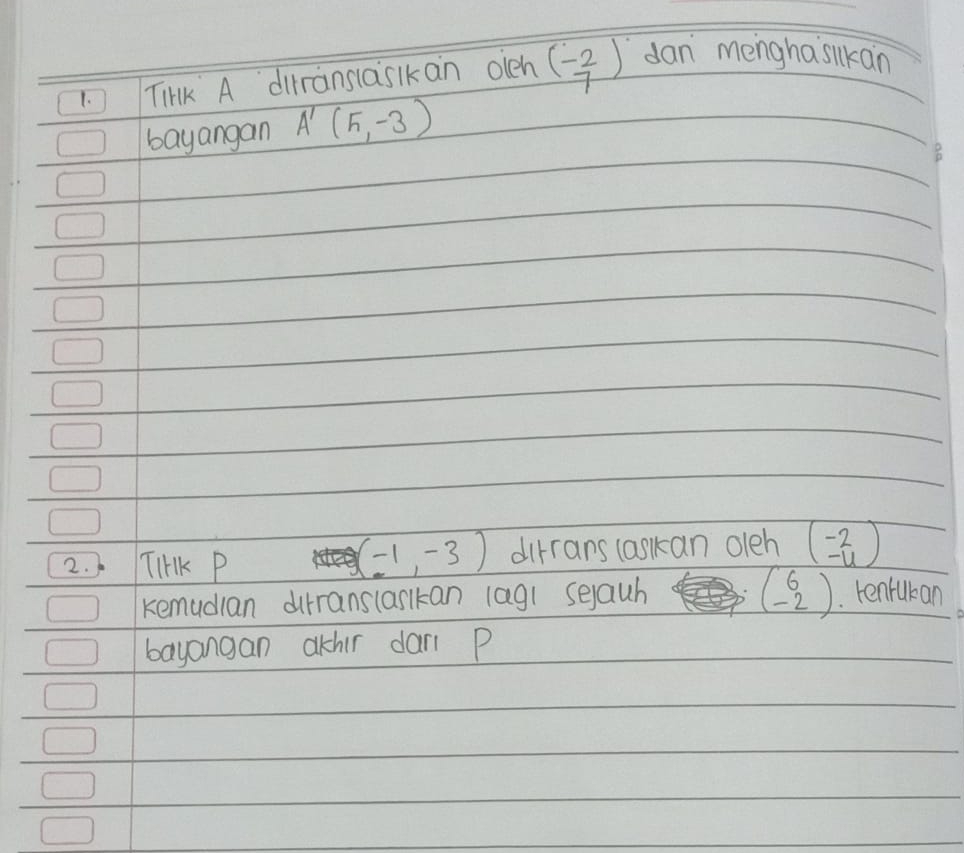 1. Titik A ditranslasikan oleh (-2 7) dan menghasilkan
bayangan A' (5, -3)
2. Titik P (-1, -3) ditranslasikan oleh (-2 -4)
kemudian ditranslasikan lagi sejauh (6 -2). tentukan
bayangan akhir dari P